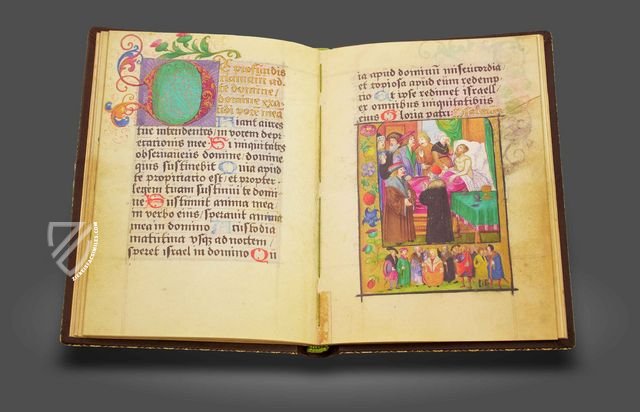 De profundis
clamavi ad
te domine
domine exa
udi vocem mea
Fiant aures
tue intendentes in vocem depr
ecationis mee Si iniquitates
observaveris domine domine
quis sustinebit Quia apud
te propiciatio est et propter
legem tuam sustinui te domi
ne Sustinuit anima mea
in verbo eius speravit anima
mea in domino A custodia
matutina usqz ad noctem
speret israel in domino Qu
ia apud dominū misericordia
et copiosa apud eum redemp
tio Et ipse redimet israell
ex omnibus iniquitatibus
eius Gloria patri
ZIEREISFACSIMILES.COM